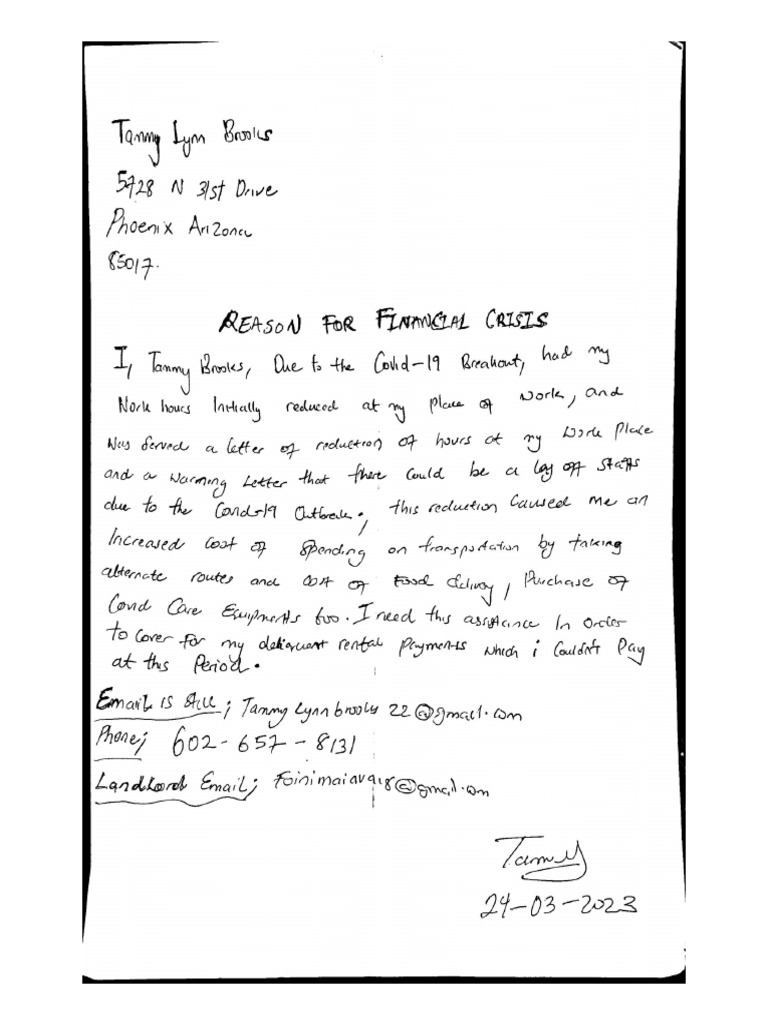 Tammy Lynn Brooks
5728 N 31st Drive
Phoenix Arizona
85017.
REASON FOR FINANCIAL CRISIS
I, Tammy Brooks, Due to the Covid-19 Breakout, had my
Work hours Initially reduced at my place of work, and
Was Served a letter of reduction of hours at my work place
and a Warning Letter that there could be a lay off staffs
due to the Covid-19 Outbreak., this reduction caused me an
Increased cost of spending on transportation by taking
alternate routes and cost of Food delivery, Purchase of
Covid Care Equipments too. I need this assistance In order
to cover for my delinquent rental payments which i couldn't Pay
at this Period.
Email is still; Tammylynnbrooks22@gmail.com
Phone; 602-657-8131
Landlord Email; @gmail.com
Tammy
24-03-2023